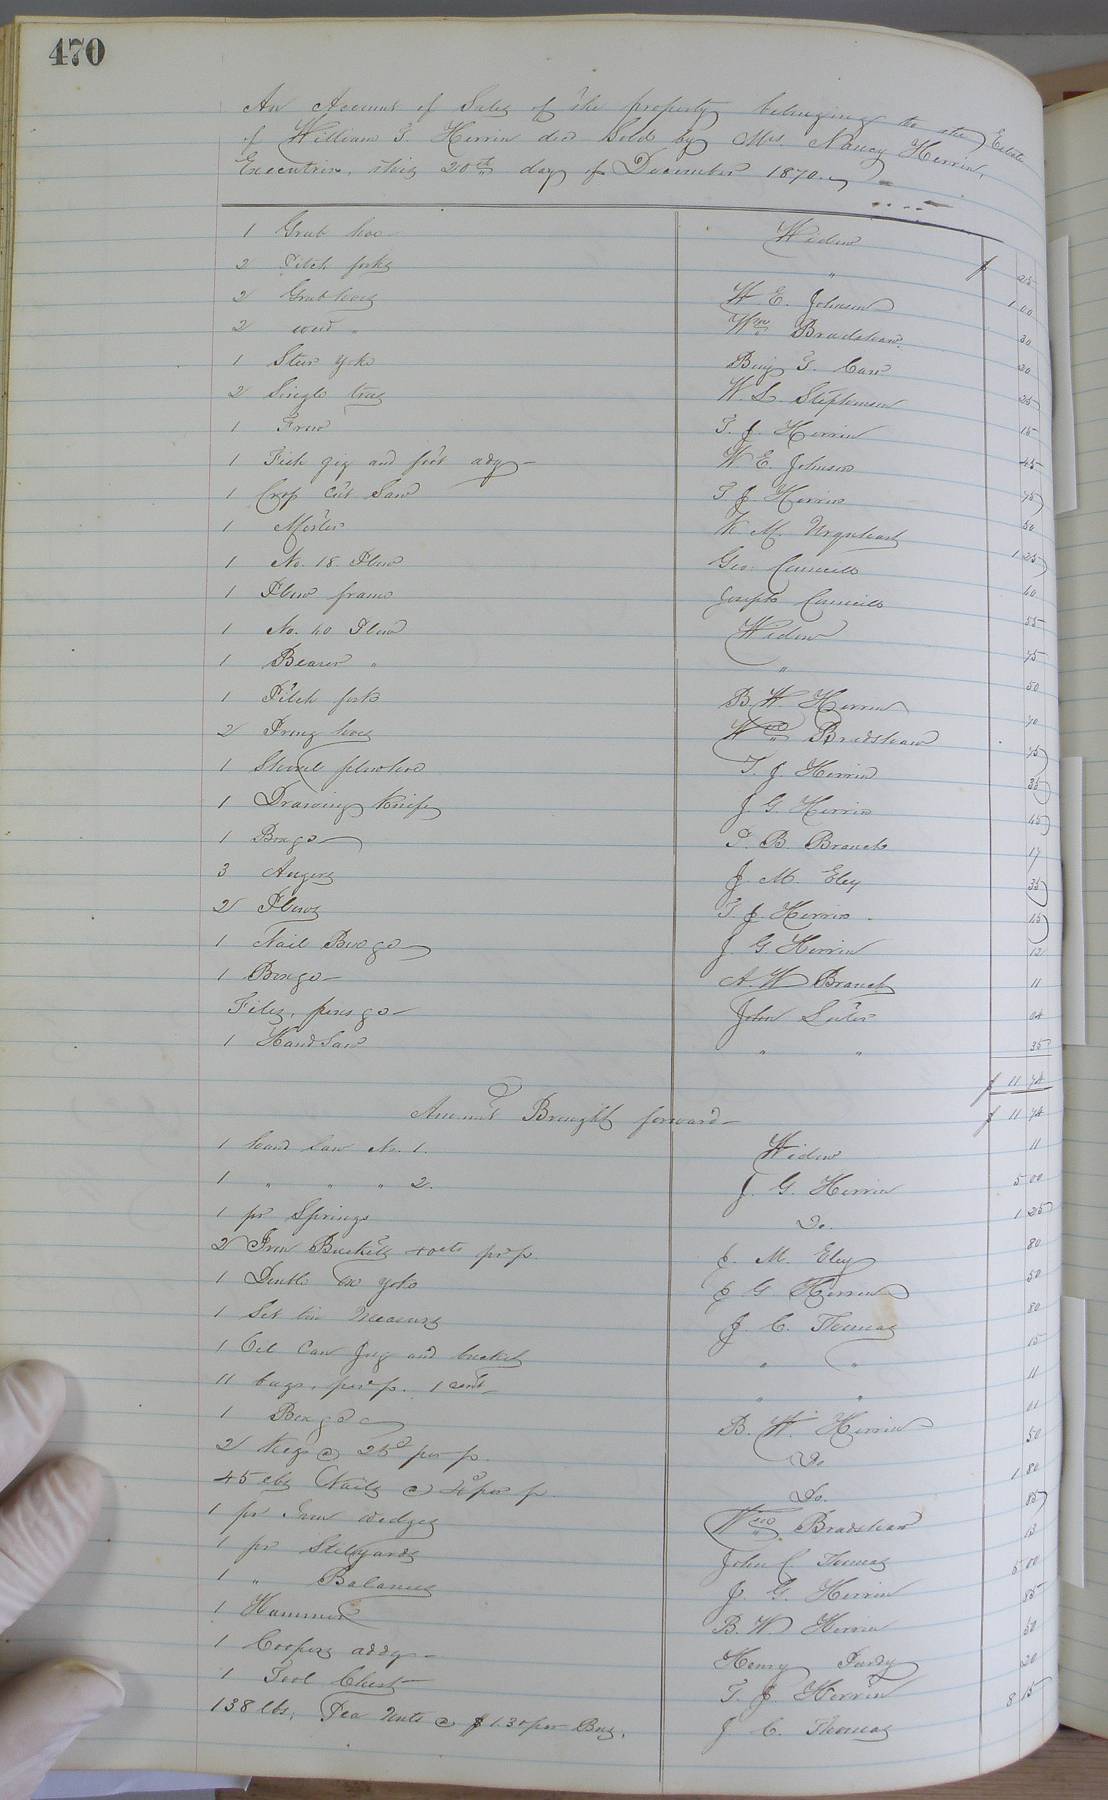 470
An Account of Sales of the property belonging to the Estate
of William T. Herrin decd Sold by Mrs. Nancy Herrin,
Executrix, this 20th day of December 1870.
1 Grub hoe Widow $ 25
2 Pitch forks " 1 00
2 Grub hoes W. E. Johnson 30
2 weed " Wm Bradshaw 20
1 Steer yoke Benj T. Carr 25
2 Single trees W. S. Stephenson 15
1 Frow T. J. Herrin 45
1 Fish gig and foot adze W. E. Johnson 75
1 Crop Cut Saw T J Herrin 50
1 Morter W. M. Urquhart 1 25
1 No. 18. Plow Geo. Councill 60
1 Plow frame Joseph Councill 55
1 No. 40 Plow Widow 75
1 " " 50
1 Pitch fork B. W. Herrin 70
2 Prong hoes Wm Bradshaw 75
1 Shovel plow hoe T. J. Herrin 35
1 Drawing Knife J G. Herrin 45
1 Box &c P. B. Branch 17
3 Augers J. M. Eley 35
2 Plows T. J. Herrin 15
1 Nail Box &c J. G Herrin 12
1 Box &c A. W Branch 11
Files, pens &c John Suter 04
1 Hand Saw " " 35
$ 11 74
Amount Brought forward $ 11 74
1 hand Saw No. 1. Widow 11
1 " " " 2. J. G. Herrin 5 00
1 pr Springs Do. 1 25
2 Iron Buckets 40cts pr p. J. M. Eley 80
1 Double ox yoke J G Herrin 50
1 Set tin Measures J. C. Thomas 80
1 Oil Can Jug and bucket " " 15
11 bags, per p. 1 cent " " 11
1 Box &c B. W. Herrin 11
2 Kegs @ 25c per p. Do 50
45 lbs Nails @ 4c per p Do. 1 80
1 pr Iron wedges Wm Bradshaw 85
1 pr Stilyards John C. Thomas 13
1 " Balances J. G. Herrin 5 00
1 Hammer B. W. Herrin 85
1 Coopers addz Henry Purdy 50
1 Tool Chest T. J Herrin 20
138 lbs, Pea Nuts @ $1.30 per Bus, J C. Thomas 8 15